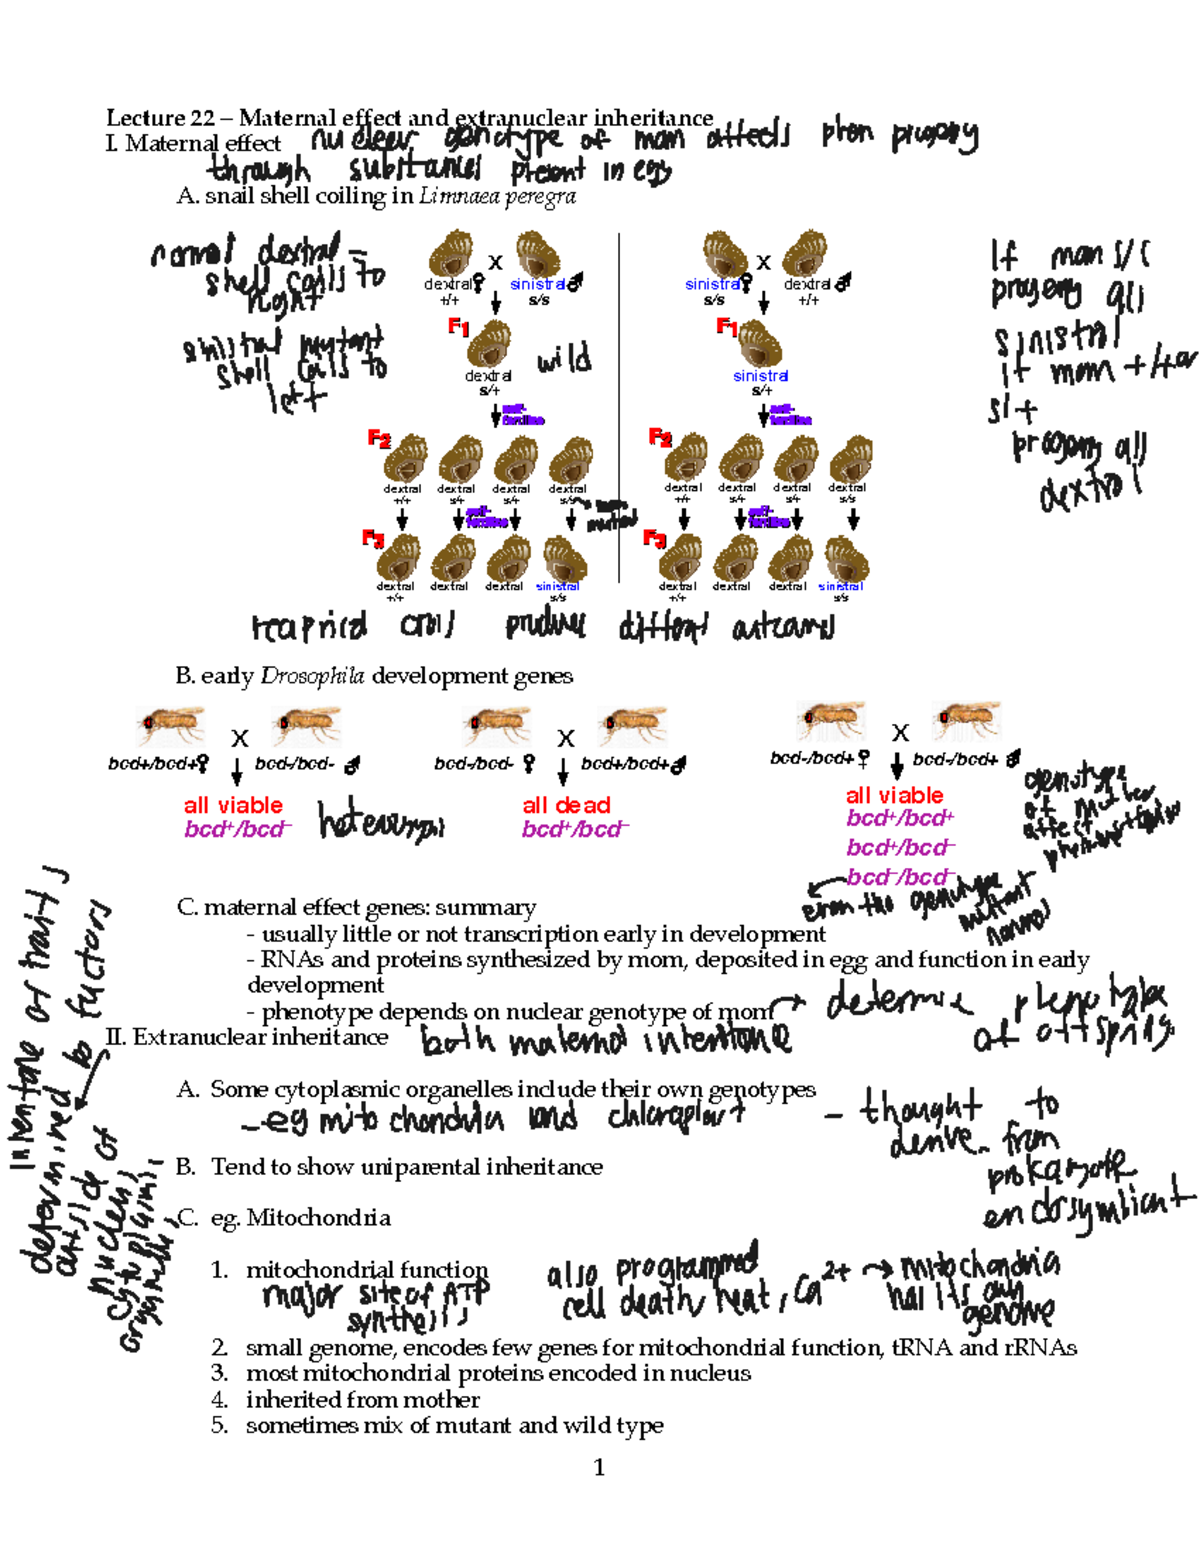 Lecture 22 – Maternal effect and extranuclear inheritance
I. Maternal effect nuclear genotype of mom affects phen progeny
through substances present in egg
A. snail shell coiling in Limnaea peregra
normal dextral –
shell coils to
right
sinistral mutant
shell coils to
left
X
dextral♀ sinistral♂
+/+ s/s
F1
wild
dextral
s/+
self-
fertilize
F2
dextral dextral dextral dextral
+/+ s/+ s/+ s/s
mutant
self-
fertilize
F3
dextral dextral dextral sinistral
+/+ s/s
X
sinistral♀ dextral♂
s/s +/+
F1
sinistral
s/+
self-
fertilize
F2
dextral dextral dextral dextral
+/+ s/+ s/+ s/s
self-
fertilize
F3
dextral dextral dextral sinistral
+/+ s/s
If mom s/s
progeny all
sinistral
if mom +/+ or
s/+
progeny all
dextral
reciprical cross produce different outcomes
B. early Drosophila development genes
X
bcd+/bcd+♀ bcd-/bcd- ♂
all viable
bcd+/bcd–
X
bcd-/bcd- ♀ bcd+/bcd+♂
all dead
bcd+/bcd–
X
bcd-/bcd+♀ bcd-/bcd+ ♂
all viable
bcd+/bcd+
bcd+/bcd–
bcd–/bcd–
genotype
of mother
affect
even tho genotype
mutant
normal
C. maternal effect genes: summary
- usually little or not transcription early in development
- RNAs and proteins synthesized by mom, deposited in egg and function in early
development
- phenotype depends on nuclear genotype of mom → determine phenotype
of offspring
II. Extranuclear inheritance both maternal
of traits
determined by factors
outside of
nucleus
A. Some cytoplasmic organelles include their own genotypes
– eg mitochondria and chloroplast
– thought to
derive from
prokaryote
endosymbiont
B. Tend to show uniparental inheritance
C. eg. Mitochondria
1. mitochondrial function
major site of ATP
synthesis
also programmed
cell death, heat, Ca2+ → mitochondria
has its own
genome
2. small genome, encodes few genes for mitochondrial function, tRNA and rRNAs
3. most mitochondrial proteins encoded in nucleus
4. inherited from mother
5. sometimes mix of mutant and wild type
1